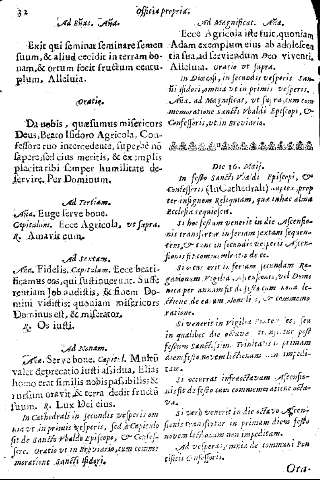 32
Officia propria.
Ad Beñat. Aña.
Exit qui seminat seminare semen
suum, & aliud cecidit in terram bo-
nam, & ortum fecit fructum centu-
plum. Alleluia.
Oratio.
Da nobis, quæsumus misericors
Deus, Beato Isidoro Agricola, Con-
fessore tuo intercedente, superbè nõ
sapere, sed eius meritis, & exemplis
placita tibi semper humilitate de-
servire. Per Dominum.
Ad Tertiam.
Aña. Euge serve bone.
Capitulum. Ecce Agricola, ut supra.
R. Amavit eum.
Ad Sextam.
Aña. Fidelis. Capitulum. Ecce beati-
ficamus eos, qui sustinuerunt. Suffe-
rentiam Job audistis, & finem Do-
mini vidistis; quoniam misericors
Dominus est, & miserator.
R. Os iusti.
Ad Nonam.
Aña. Serve bone. Capitul. Multũ
valet deprecatio iusti assidua, Elias
homo erat similis nobis passibilis: &
rursum oravit, & terra dedit fructũ
suum. R. Lux Dei eius.
In Cathedrali in secundis vesperis om-
nia ut in primis vesperis, sed & Capitulo
fit de Sancti Ubaldo Episcopo, & Confes-
sore. Oratio ut in Breviario, cum comme-
moratione Sancti Isidori.
Ad Magnificat. Aña.
Ecce Agricola iste fuit, quoniam
Adam exemplum eius ab adolescen-
tia sua, ad serviendum Deo viventi.
Alleluia. Oratio ut supra.
In Diœcesi, in secundis vesperis San-
cti Isidori, omnia ut in primis vesperis,
Aña. ad Magnificat, ut supra, cum com-
memoratione Sancti Ubaldi Episcopi, &
Confessoris, ut in Breviario.
Die 16. Maij.
In festo Sancti Ubaldi Episcopi, &
Confessoris (In Cathedrali) duplex, prop-
ter insignem Reliquiam, quæ in hac alma
Ecclesia requiescit.
Si hoc festum venerit in die Ascensio-
nis transfertur in feriam sextam sequen-
tem, & tunc in secundis vesperis Ascen-
sionis fit commemoratio de eo.
Si venerit in feriam secundam Ro-
gationum Vigilia
Si venerit in Vigilia Pentecostes, seu
in qualibet die octavæ
festum Sanctissim. Trinitatis in primam
diem festo novem lectionum non impedi-
tam.
Si occurrat infra octavam Ascensio-
nis fit de festo cum commemoratione octa-
væ.
Si verò venerit in die octavo Ascen-
sionis transfertur in primam diem festo
novem lectionum non impeditam.
Ad vesperas, omnia de communi Pon-
tificis Confessoris.
Ora-